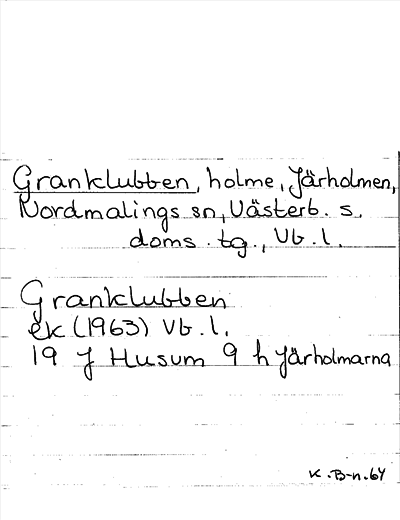 Granklubben, holme, Järholmen,
Nordmalings sn, Västerb. s.
doms. tg., Vb. l.
Granklubben
ek (1963) Vb. l.
19 J Husum 9 h Järholmarna
K. B-n. 64